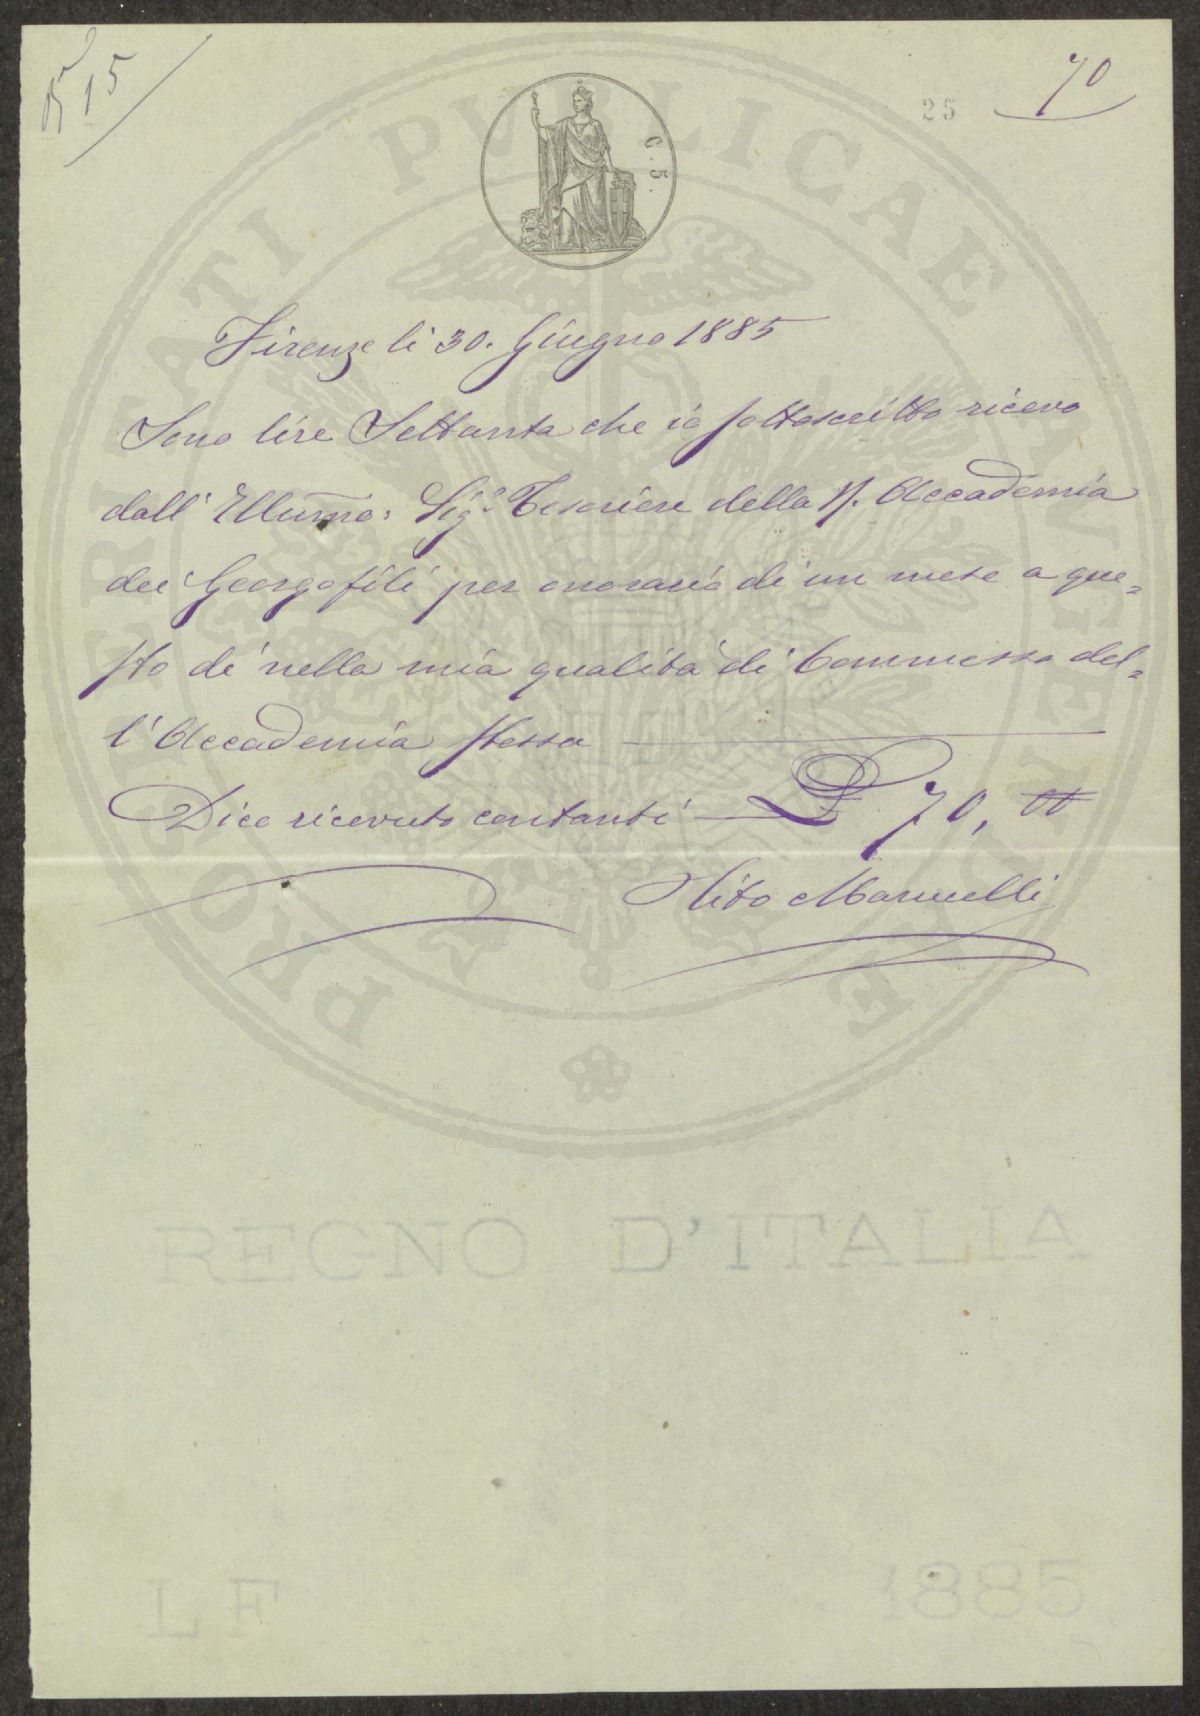 15
70
25
C. 5.
PROSPERITATI PVBLICAE AVGENDAE
Firenze lì 30. Giugno 1885
Sono lire Settanta che io sottoscritto ricevo
dall' Illumo: Sigr Tesoriere della R. Accademia
dei Georgofili per onorario di un mese a que=
sto dì nella mia qualità di Commesso del=
l'Accademia stessa
Dico ricevuto contanti £ 70, 00
Tito Marucelli
REGNO D'ITALIA
LF 1885